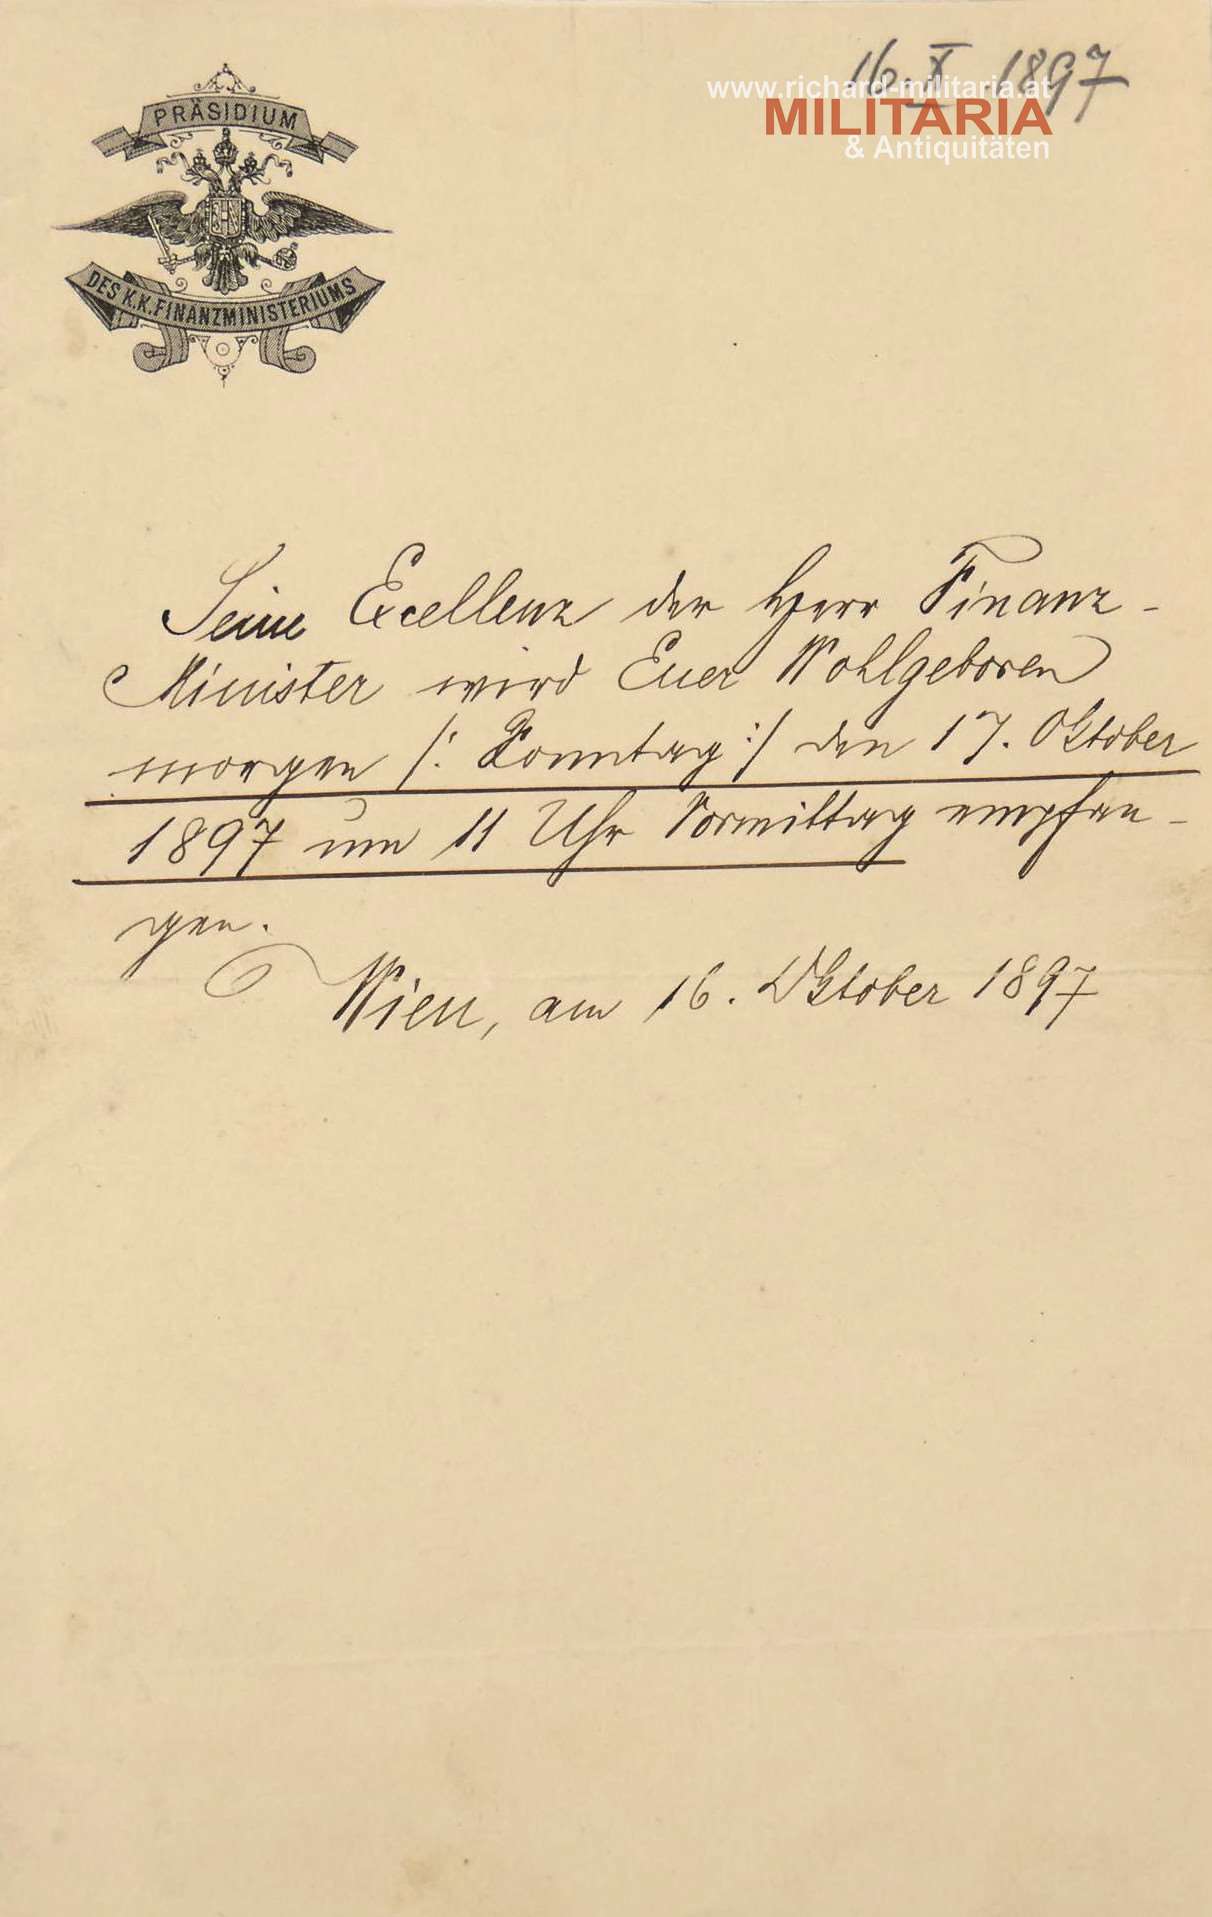 16. X. 1897
www.richard-militaria.at
MILITARIA
& Antiquitäten
PRÄSIDIUM
DES K.K. FINANZMINISTERIUMS
Seine Excellenz der Herr Finanz-
Minister wird Euer Wohlgeboren
morgen /: Sonntag :/ den 17. Oktober
1897 um 11 Uhr Vormittag empfan-
gen.
Wien, am 16. Oktober 1897